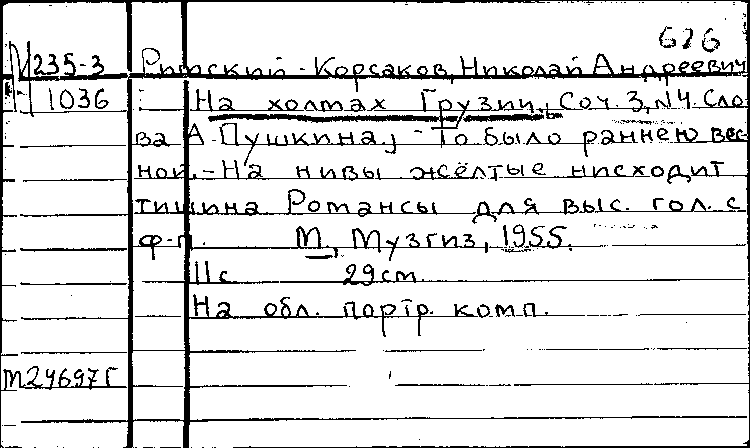 626
М235-3 Римский-Корсаков, Николай Андреевич
1036 На холмах Грузии, Соч. 3, N4. Сло
ва А. Пушкина, - То было раннею вес
ной. - На нивы жёлтые нисходит
тишина Романсы для выс. гол. с
ф-п. М., Музгиз, 1955.
11с 29см.
На обл. портр. комп.
м24697г